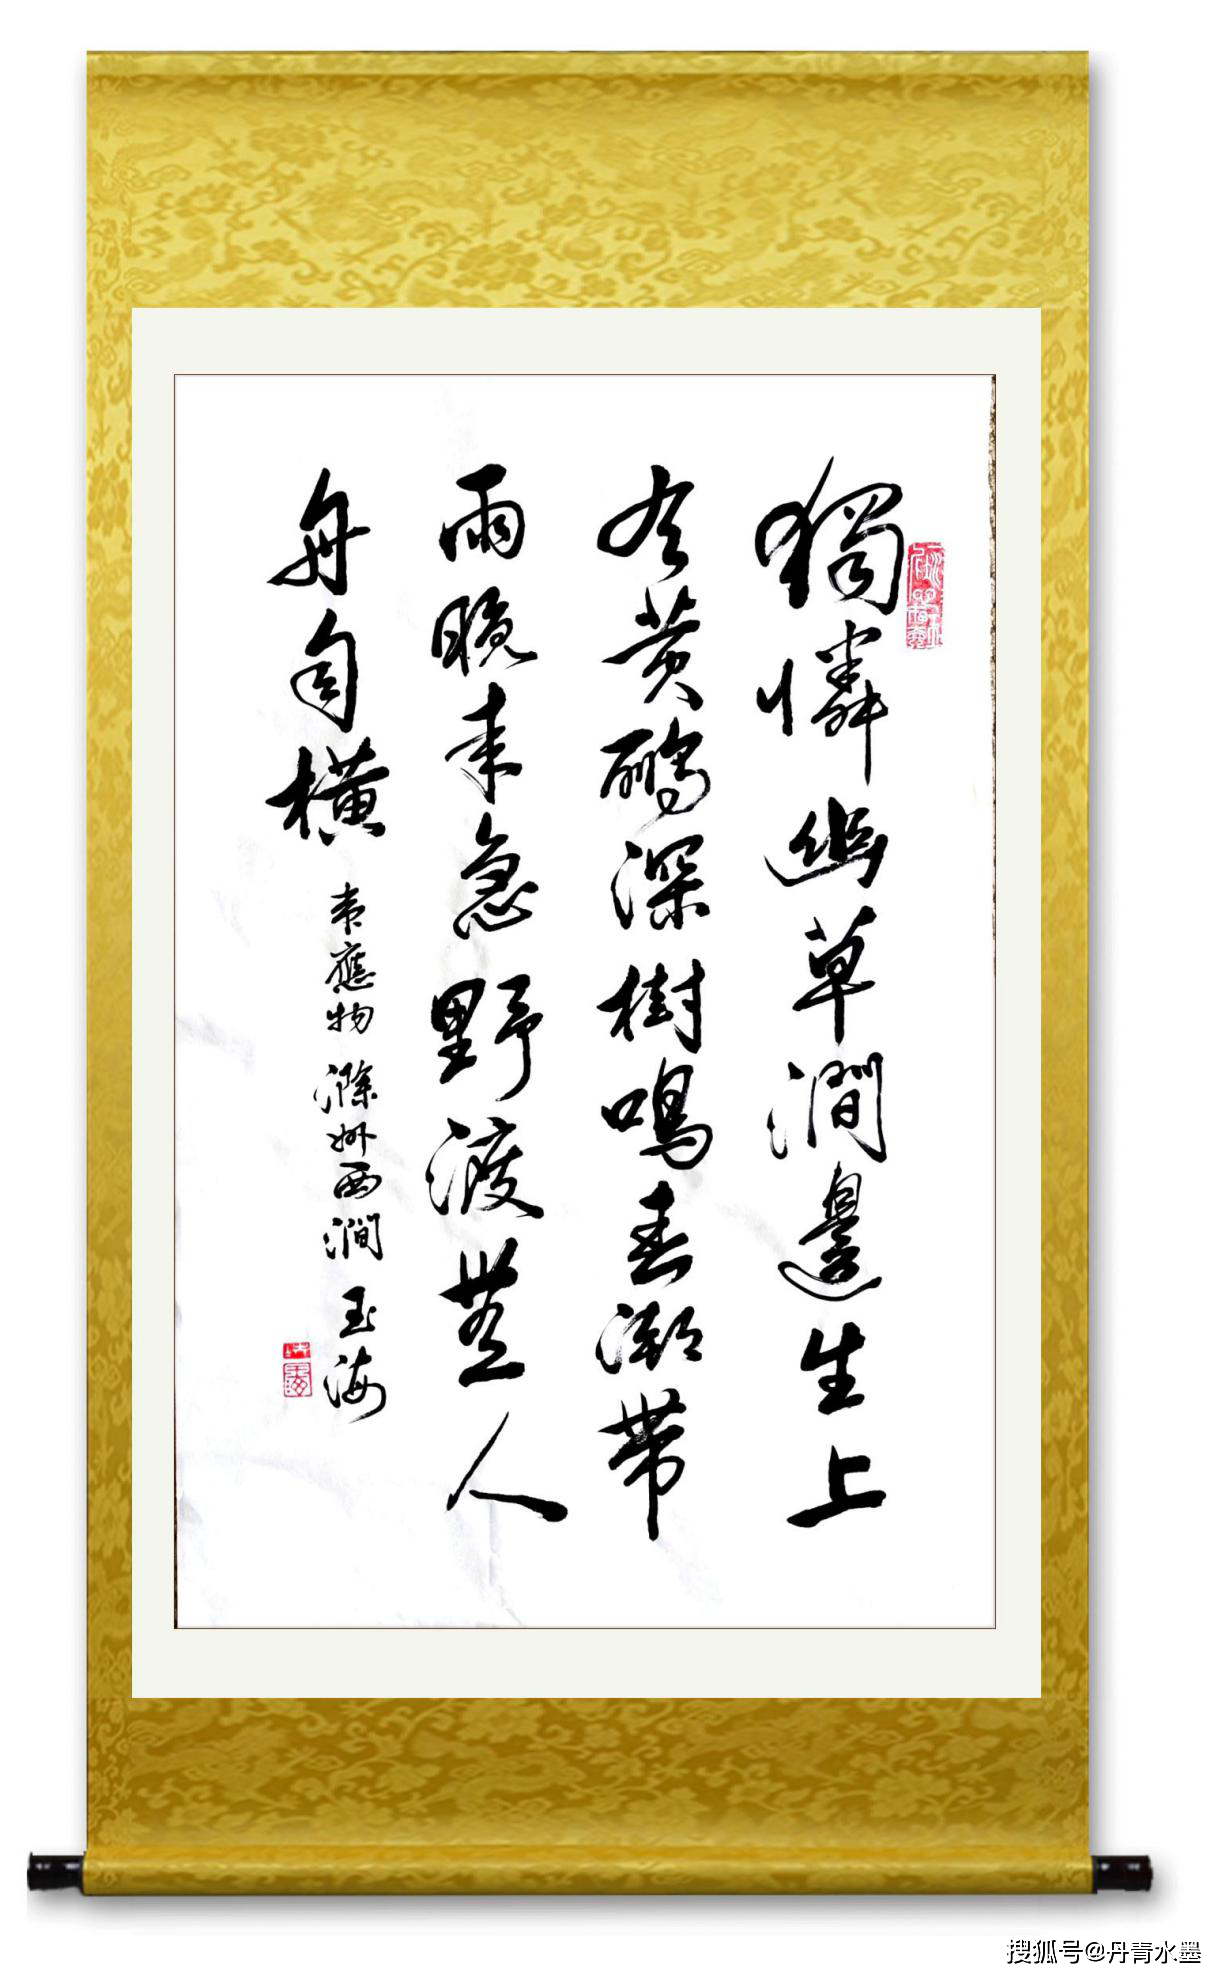 獨憐幽草澗邊生上
有黄鸝深樹鳴春潮帶
雨晚来急野渡無人
舟自横
韦應物 滁州西澗 玉海
搜狐号@丹青水墨